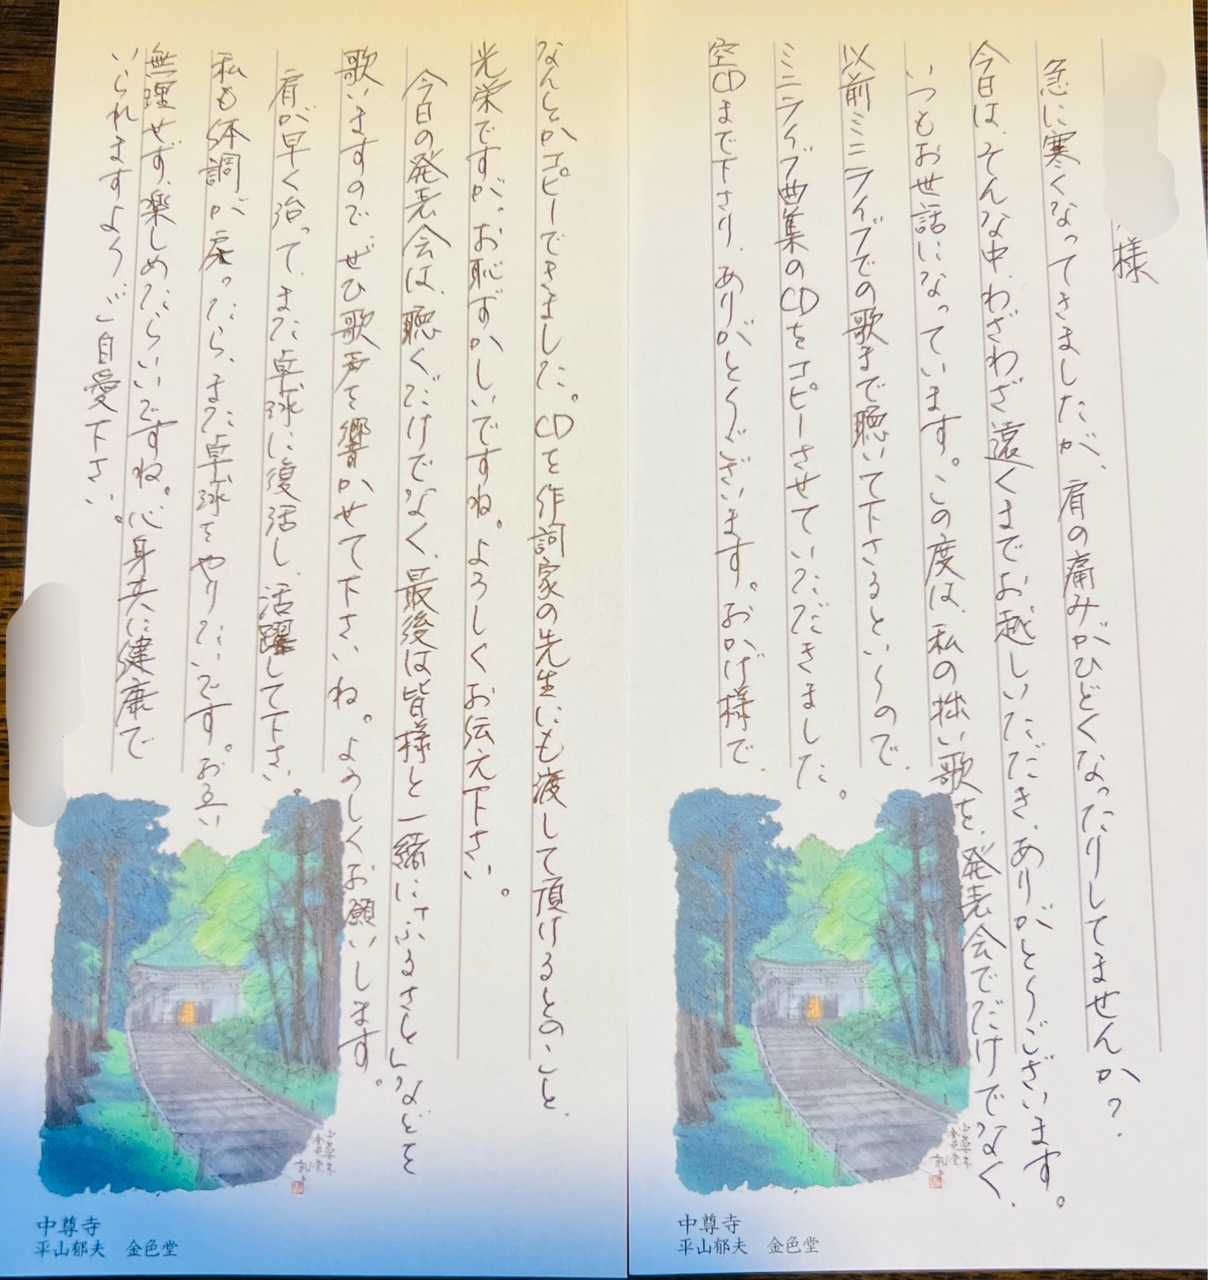 様
急に寒くなってきましたが、肩の痛みがひどくなったりしてませんか?
今日は、そんな中、わざわざ遠くまでお越しいただき、ありがとうございます。
いつもお世話になっています。この度は、私の拙い歌を、発表会でだけでなく、
以前ミニライブでの歌まで聴いて下さるというので、
ミニライブ曲集のCDをコピーさせていただきました。
空CDまで下さり、ありがとうございます。おかげ様で、
中尊寺
平山郁夫 金色堂
なんとかコピーできました。CDを作詞家の先生にも渡して頂けるとのこと、
光栄ですが、お恥ずかしいですね。よろしくお伝え下さい。
今日の発表会は、聴くだけでなく、最後は皆様と一緒に「ふるさと」などを
歌いますので、ぜひ歌声を響かせて下さいね。よろしくお願いします。
肩が早く治って、また卓球に復活し、活躍して下さい。
私も体調が戻ったら、また卓球をやりたいです。お互い
無理せず、楽しめたらいいですね。心身共に健康で
いられますよう、ご自愛下さい。
中尊寺
平山郁夫 金色堂